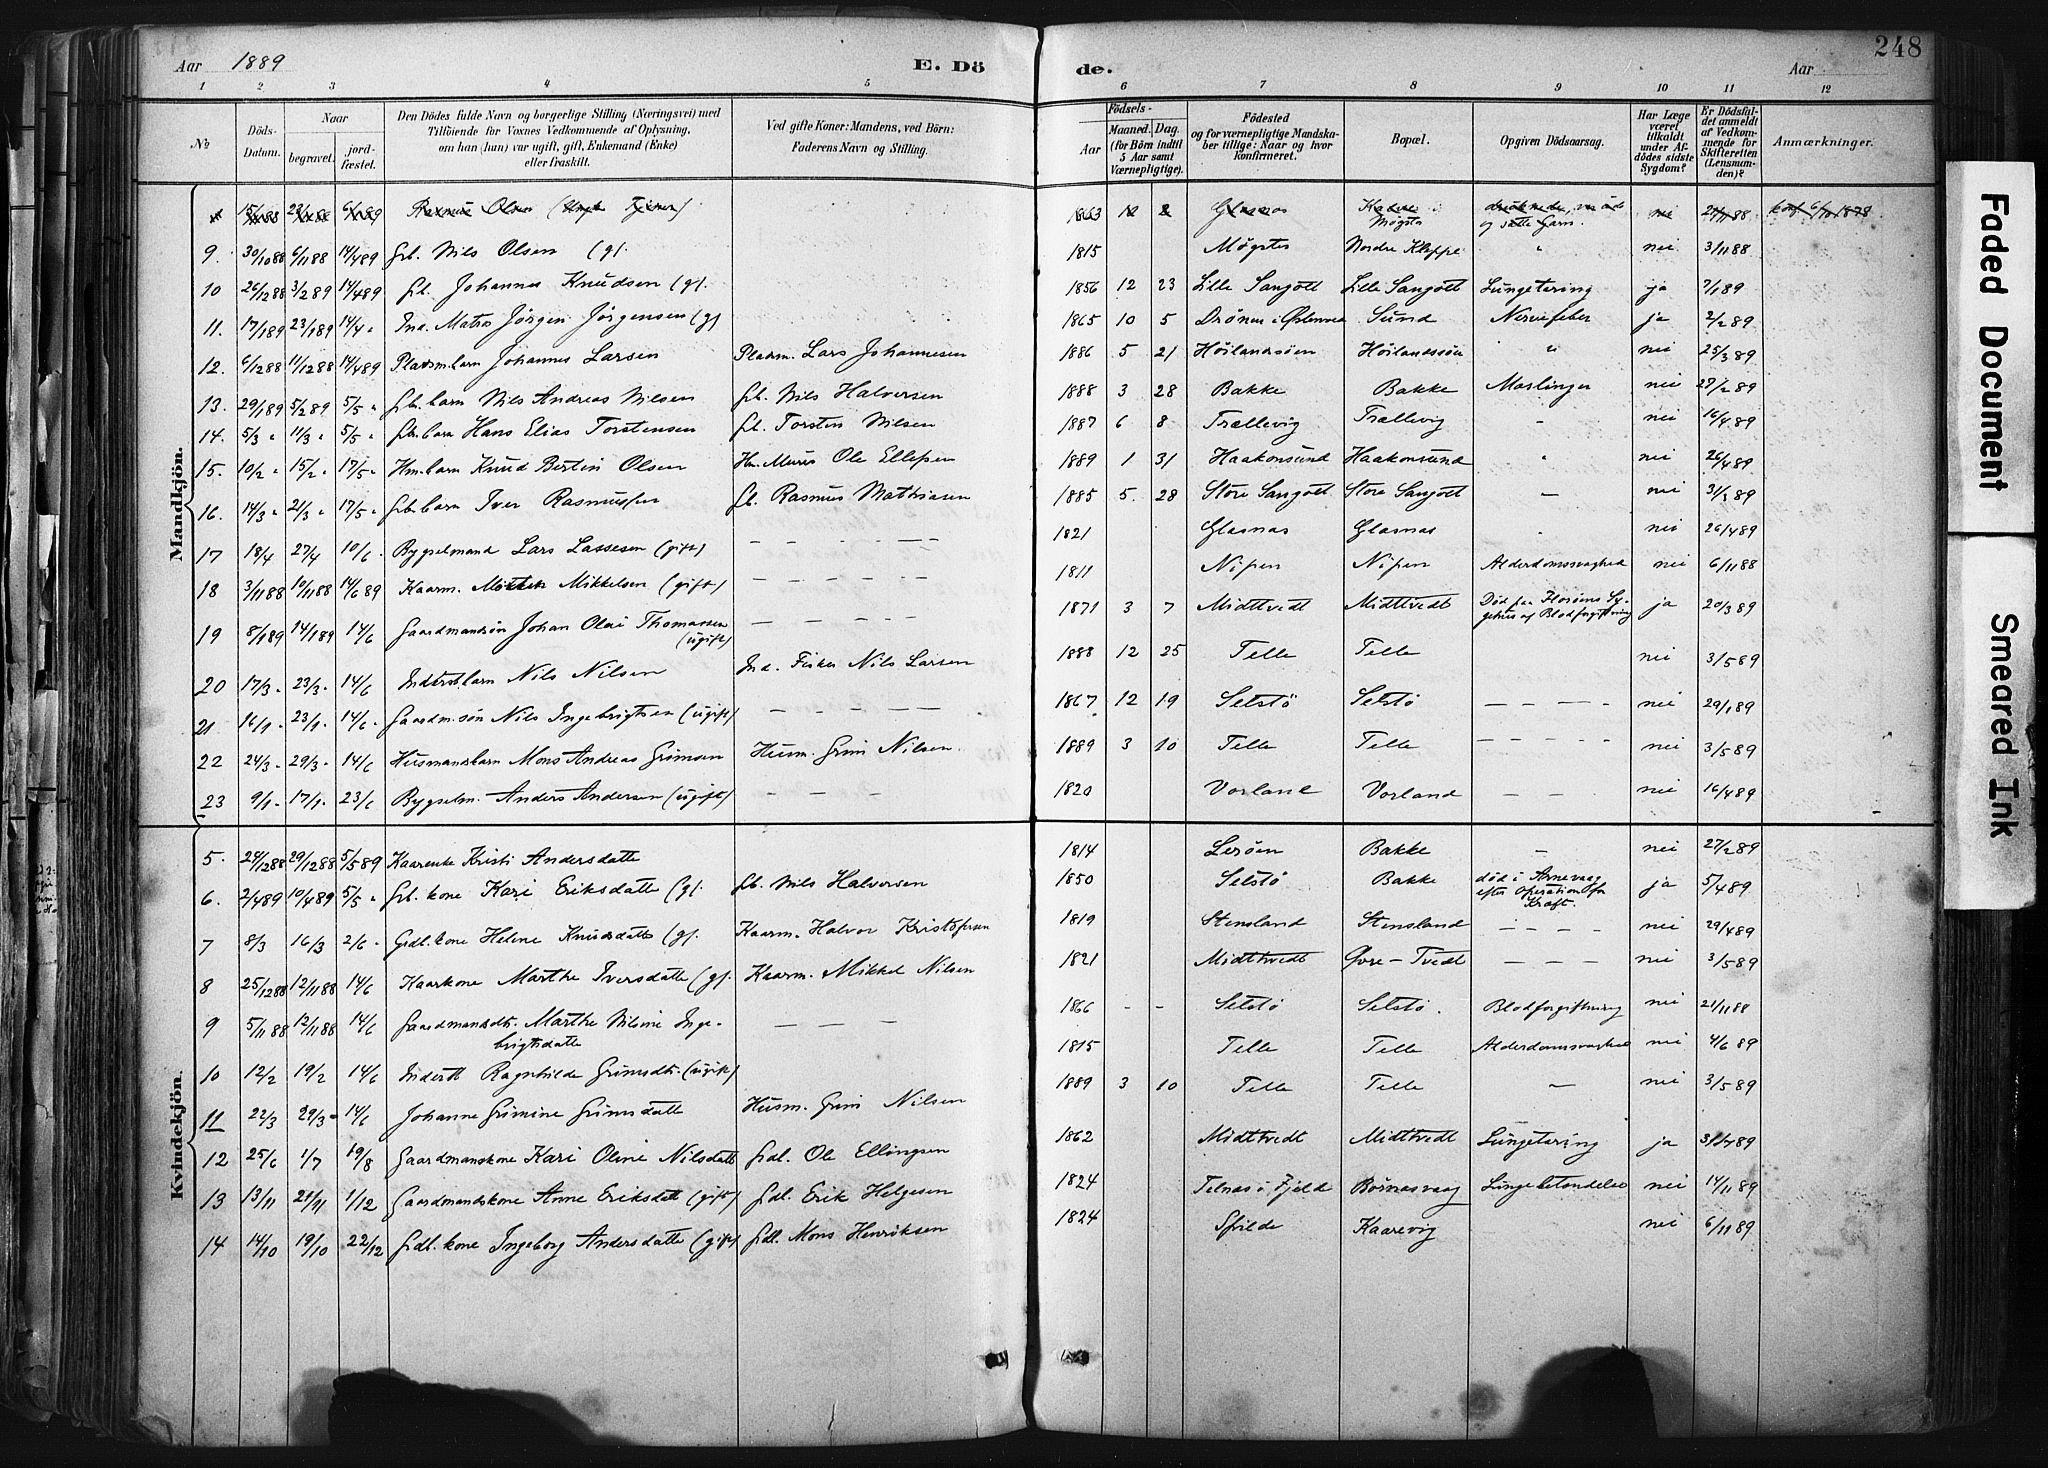 248
Aar 1889
E. Dö
de.
Aar
1 2 3 4 5 6 7 8 9 10 11 12
No
Döds-Datum.
Naar
begravet.
jord-fæstet.
Den Dödes fulde Navn og borgerlige Stilling (Næringsvei) med
Tilföiende for Voxnes Vedkommende af Oplysning,
om han (hun) var ugift, gift, Enkemand (Enke)
eller fraskilt.
Ved gifte Koner: Mandens, ved Börn:
Faderens Navn og Stilling.
Födsels-
Aar
Maaned. Dag.
(for Börn indtil
5 Aar samt
Værnepligtige).
Födested
og for værnepligtige Mandska-
ber tillige: Naar og hvor
konfirmeret.
Bopæl.
Opgiven Dödsaarsag.
Har Læge
været
tilkaldt
under Af-
dödes sidste
Sygdom?
Er Dödsfal-
det anmeldt
af Vedkom-
mende for
Skifteretten
(Lensman-
den)?
Anmærkninger.
Mandkjön.
Rasmus Olsen 1863 12 8 Glasnæs Møgster og satte Garn. nei 27/11 88 konf 6/10 1878
9. 30/10 88 6/11 88 14/4 89 Gb. Nils Olsen (g). 1815 Møgster Nordre Kleppe " nei 3/11 88
10 26/12 88 3/2 89 14/4 89 Gb. Johannes Knudsen (g). 1856 12 23 Lille Sangolt Lille Sangolt Lungetæring ja 7/1 89
11. 17/1 89 23/1 89 14/4 " Ind. Matros Jörgen Jörgensen (g) 1865 10 5 Drönen i Østervea Sund Nervefeber ja 2/2 89
12. 6/12 88 11/12 88 14/4 89 Pladsm.barn Johannes Larsen Pladsm. Lars Johannesen 1886 5 21 Höilandsöen Höilandssöen " nei 25/3 89
13. 29/1 89 5/2 89 5/5 " Gb. barn Nils Andreas Nilsen Gb. Nils Halversen 1888 3 28 Bakke Bakke Mæslinger nei 27/2 89
14. 5/3 " 11/3 " 5/5 " Gb. barn Hans Elias Torstensen Gb. Torsten Nilsen 1887 6 8 Trællevig Trællevig - nei 16/4 89
15. 10/2 " 15/2 " 17/5 " Hm. barn Knud Bertin Olsen Hm. Murer Ole Ellefsen 1889 1 31 Haakonsund Haakonsund " nei 26/4 89
16. 14/3 " 21/3 " 17/5 " Gb. barn Iver Rasmussen Gb. Rasmus Mathiasen 1885 5 28 Store Sangolt Store Sangolt — nei 31/3 89
17 18/4 27/4 10/6 - Bygselmand Lars Lassesen (gift) — — — — 1821 Glasnæs Glasnæs " nei 26/4 89
18 3/11 88 10/11 88 14/6 89 Kaarm. Morten Mikkelsen (gift) — — — — — 1811 Nipen Nipen Alderdomssvaghed nei 6/11 88
19 8/1 89 14/1 89 14/6 Gaardmandssön Johan Olai Thomassen — — — — 1871 3 7 Midttvedt Midttvedt Död paa Florøens Sy-
(ugift) gehus af Blodforgiftning ja 20/3 89
20 17/3 - 23/3 - 14/6 Inderstbarn Nils Nilsen Ind. Fisker Nils Larsen 1888 12 25 Telle Telle nei 3/5 89
21 16/1 - 23/1 - 14/6 - Gaardm. sön Nils Ingebrigtsen (ugift) — — — — — 1867 12 19 Selstö Selstö — — — — nei 29/1 89
22 24/3 - 29/3 - 14/6 Husmandsbarn Mons Andreas Grimsen Husm. Grim Nilsen 1889 3 10 Telle Telle — — — — nei 3/5 89
23 9/1 - 17/1 - 23/6 Bygselm. Anders Andersen (ugift) — — — 1820 Vorland Vorland — — nei 16/4 89
Kvindekjön.
5. 24/12 88 29/12 88 5/5 89 Kaarenke Kristi Andersdatte 1814 Leröen Bakke — nei 27/2 89
6. 2/4 89 10/4 89 5/5 " Gb. kone Kari Eriksdatte (g). Gb. Nils Halversen 1850 Selstö Bakke död i Arnevaag
efter Operation for
Kræft. ja 5/4 89
7 8/3 16/3 2/6 - Gdl. kone Helene Knudsdatte (g). Kaarm. Halvor Kristofersen 1819 Stensland Stensland — — — — nei 29/4 89
8 25/12 88 12/11 88 14/6 Kaarkone Marthe Iversdatte (g). Kaarm. Mikkel Nilsen 1821 Midttvedt Øvre-Tvedt — — — nei 3/5 89
9 5/11 88 12/11 88 14/6 Gaardmandsdtr. Marthe Nilsine Inge-
brigtsdatte — — — 1866 - - Selstö Selstö. Blodforgiftning nei 21/11 88
10 12/2 19/2 14/6 Inderst Ragnhilde Grimsdtr. (ugift) 1815 Telle Telle Alderdomssvaghed nei 4/6 89
11 22/3 29/3 - 14/6 Johanne Grimine Grimsdatte Husm. Grim Nilsen 1889 3 10 Telle Telle — nei 3/5 89
12 25/6 1/7 19/8 Gaardmandskone Kari Oline Nilsdatte Gdl. Ole Ellingsen 1862 Midttvedt Midttvedt Lungetæring ja 31/7 89
13 13/11 21/11 1/12 Gaardmandskone Anne Eriksdatte (gift) Gdl. Erik Helgesen 1824 Telnæs i Fjeld Börnesvaag Lungebetændelse nei 14/11 89
14 14/10 19/10 22/12 Gdl. kone Ingeborg Andersdatte (gift) Gdl. Mons Henriksen 1824 Spilde Kaarevig nei 6/11 89
Faded Document
Smeared Ink